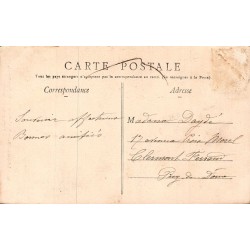 CARTE POSTALE
Tous les pays étrangers n'acceptent pas la correspondance au verso. (Se renseigner à la Poste)
Correspondance
Adresse
Souvenir affectueux
Bonnes amitiés
Madame Daydé
17 avenue
Clermont Ferrand
Puy de Dôme